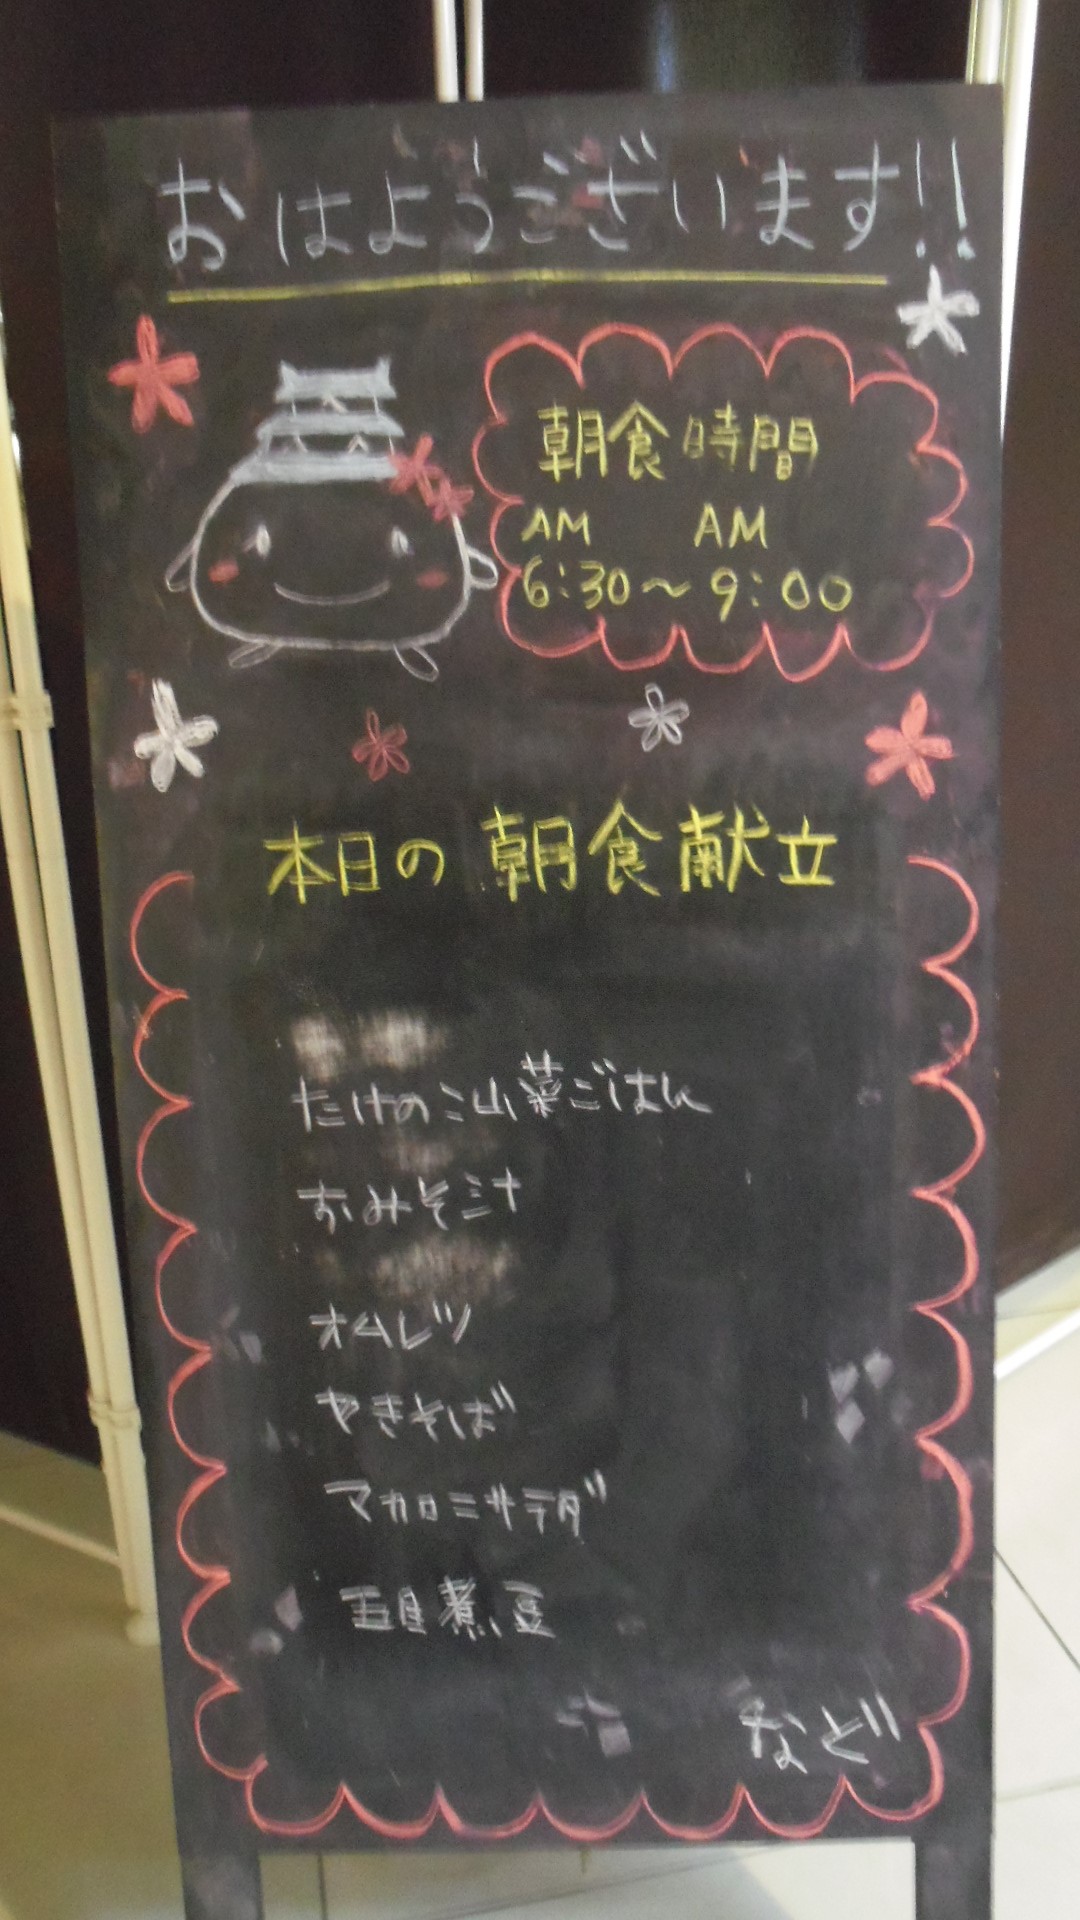 おはようございます!!
朝食時間
AM AM
6:30～9:00
本日の朝食献立
たけのこ山菜ごはん
おみそ汁
オムレツ
やきそば
マカロニサラダ
五目煮豆
など